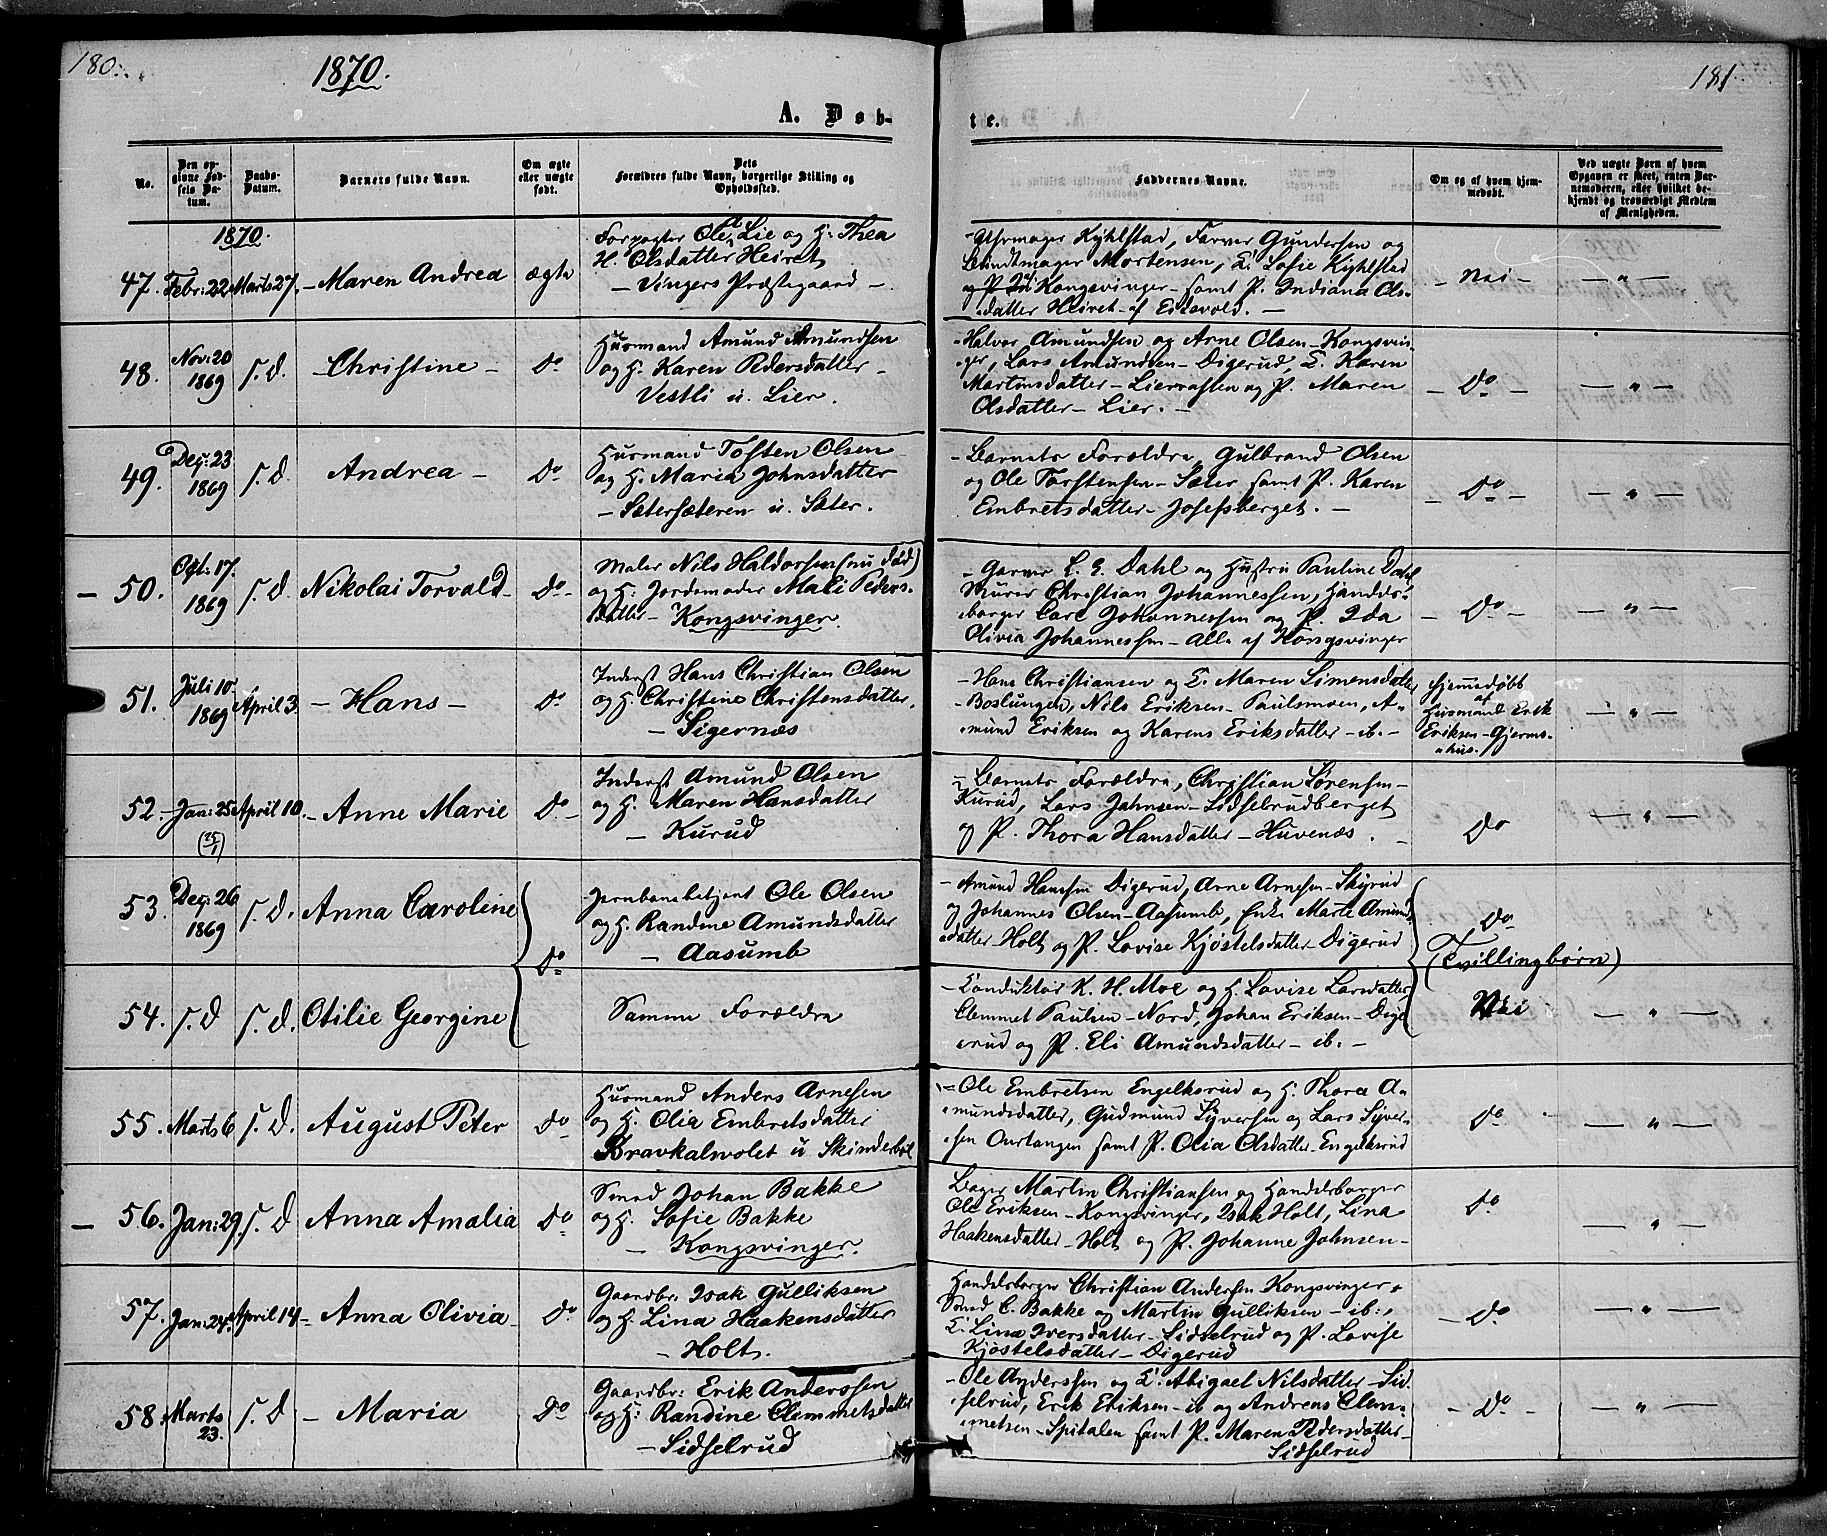 180.
1870.
A. Døb-
No.
Den op-
givne Fød-
sels Da-
tum.
Daabs-
Datum.
Barnets fulde Navn.
Om ægte
eller uægte
født.
Dets
Forældres fulde Navn, borgerlige Stilling og
Opholdssted.
1870.
47. Febr: 22 Marts 27. - Maren Andrea ægte
Forpagter Ole A Lie og H. Thea
H. Olsdatter Heiret
- Vingers Præstegaard -
48. Nov: 20 1869 s.d. - Christine - do
Husmand Amund Amundsen
og H. Karen Pedersdatter -
Vestli u. Lier.
49. Dez: 23 1869 s.d. Andrea - do
Husmand Tosten Olsen
og H. Maria Johnsdatter
- Sætersæteren u. Sæter.
- 50. Oct: 17. 1869 s.d. Nikolai Torvald - do -
Maler Nils Haldorsen (nu død)
og H. Jordemoder Mali Peders-
datter - Kongsvinger.
51. Juli 10. 1869 April 3 - Hans - do
Inderst Hans Christian Olsen
og H. Christine Christensdatter.
- Sigernæs
52. Jan: 25 (25/1) April 10. - Anne Marie do -
Inderst Amund Olsen
og H. Maren Hansdatter
- Kurud
53. Dez: 26 1869 s.d. Anna Caroline do
Jernbanebetjent Ole Olsen
og H. Randine Amundsdatter
- Aasumb
54. s.d s.d. Otilie Georgine
Samme Forældre
55. Marts 6 s.d. August Peter do
Husmand Anders Arnesen
og H. Olia Embretsdatter
Bravkalvolet u Skinderbøl
- 56. Jan: 29. s.d Anna Amalia do
Smed Johan Bakke
og H. Sofie Bakke
- Kongsvinger.
57. Jan: 24. April 14 - Anna Olivia - do
Gaardbr. Isak Gulliksen
og H. Lina Haakensdatter
- Holt.
58. Marts 23. s.d - Maria do
Gaardbr: Erik Anderssen
og H: Randine Clemmetsdatter
- Sidselrud
181.
te.
Faddernes Navne.
Om og af hvem hjem-
medøbt.
Ved uægte Børn af hvem
Opgaven er skeet, enten Bar-
nemoderen, eller hvilket be-
kjendt og troværdigt Medlem
af Menigheden.
- Uhrmager Kyhlstad, Farver Gundersen og
Bundtmager Mortensen, E. Sofie Kyhlstad
Kongsvinger - samt P. Indiana Ols-
datter Heiret - af Eidsvold. -
- Nei - - " -
- Halvor Amundsen og Arne Olsen - Kongsvin-
ger, Lars Amundsen - Digerud, E. Karen
Martinsdatter - Liervassen og P. Maren
Olsdatter - Lier. -
- do - - " -
- Barnets Forældre, Gulbrand Olsen
og Ole Torstensen - Sæter samt P. Karen
Embretsdatter - Josefsberget. -
- do - - " -
- Garver L. E. Dahl og Hustru Pauline Dahl
Murer Christian Johannessen, Handels-
borger Carl Johannessen og P. Ida
Olivia Johannessen - Alle af Kongsvinger
- do - - " -
- Hans Christiansen og E. Maren Simensdatter
- Boslungen, Nils Eriksen - Paulsmoen, A-
mund Eriksen og Karens Eriksdatter - ib. -
Hjemmedøbt
af
Husmand Erik
Eriksen - Gjerms-
hus.
- " -
- Barnets Forældre, Christian Sørensen -
Kurud, Lars Jahnsen - Sidselrudberget
og P. Thora Hansdatter - Huvenæs. -
do - " -
- Amund Hansen Digerud, Arne Arnesen - Skyrud
og Johannes Olsen - Aasumb, Enke Marte Amund-
datter - Holt og P. Lovise Kjøstelsdatter Digerud
do
(Tvillingbørn)
- Konduktør K. H. Moe og H. Lovise Larsdatter
Clemmet Paulsen - Nord, Johan Eriksen - Dige
rud og P. Eli Amundsdatter - ib. -
Nei - " -
- Ole Embretsen Engelksrud og H. Thora A-
mundsdatter, Gudmund Syversen og Lars Syver-
sen Ourtangen samt P. Olia Olsdatter - Engelksrud
do - " -
Bager Martin Christiansen og Handelsborger
Ole Eriksen - Kongsvinger, Isak Holt, Lina
Haakensdatter - Holt og P. Johanne Johnsen -
do - " -
Handelsborger Christian Andersen Kongsvinger,
Smed C. Bakke og Martin Gulliksen - ib:,
E. Lina Iversdatter - Sidselrud og P. Lovise
Kjøstelsdatter - Digerud
- do - " -
- Ole Anderssen og E. Abigael Nilsdatter - Sid-
selrud, Erik Eriksen - ib og Andreas Clem-
metsen - Spitalen samt P. Maren Pedersdatter -
Sidselrud
- do - - " -